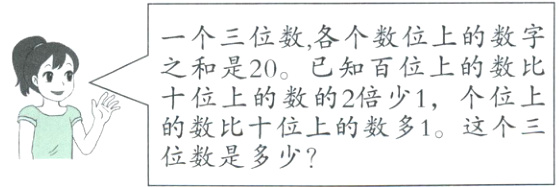 一个三位数,各个数位上的数字
之和是20。已知百位上的数比
十位上的数的2倍少1，个位上
的数比十位上的数多1。这个三
位数是多少？